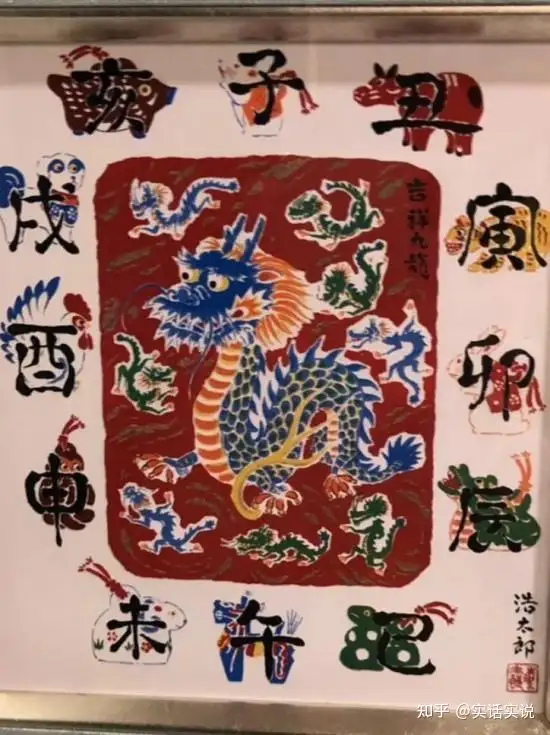 子
丑
寅
卯
辰
巳
午
未
申
酉
戌
亥
吉祥九龍
浩太郎
知乎 @实话实说